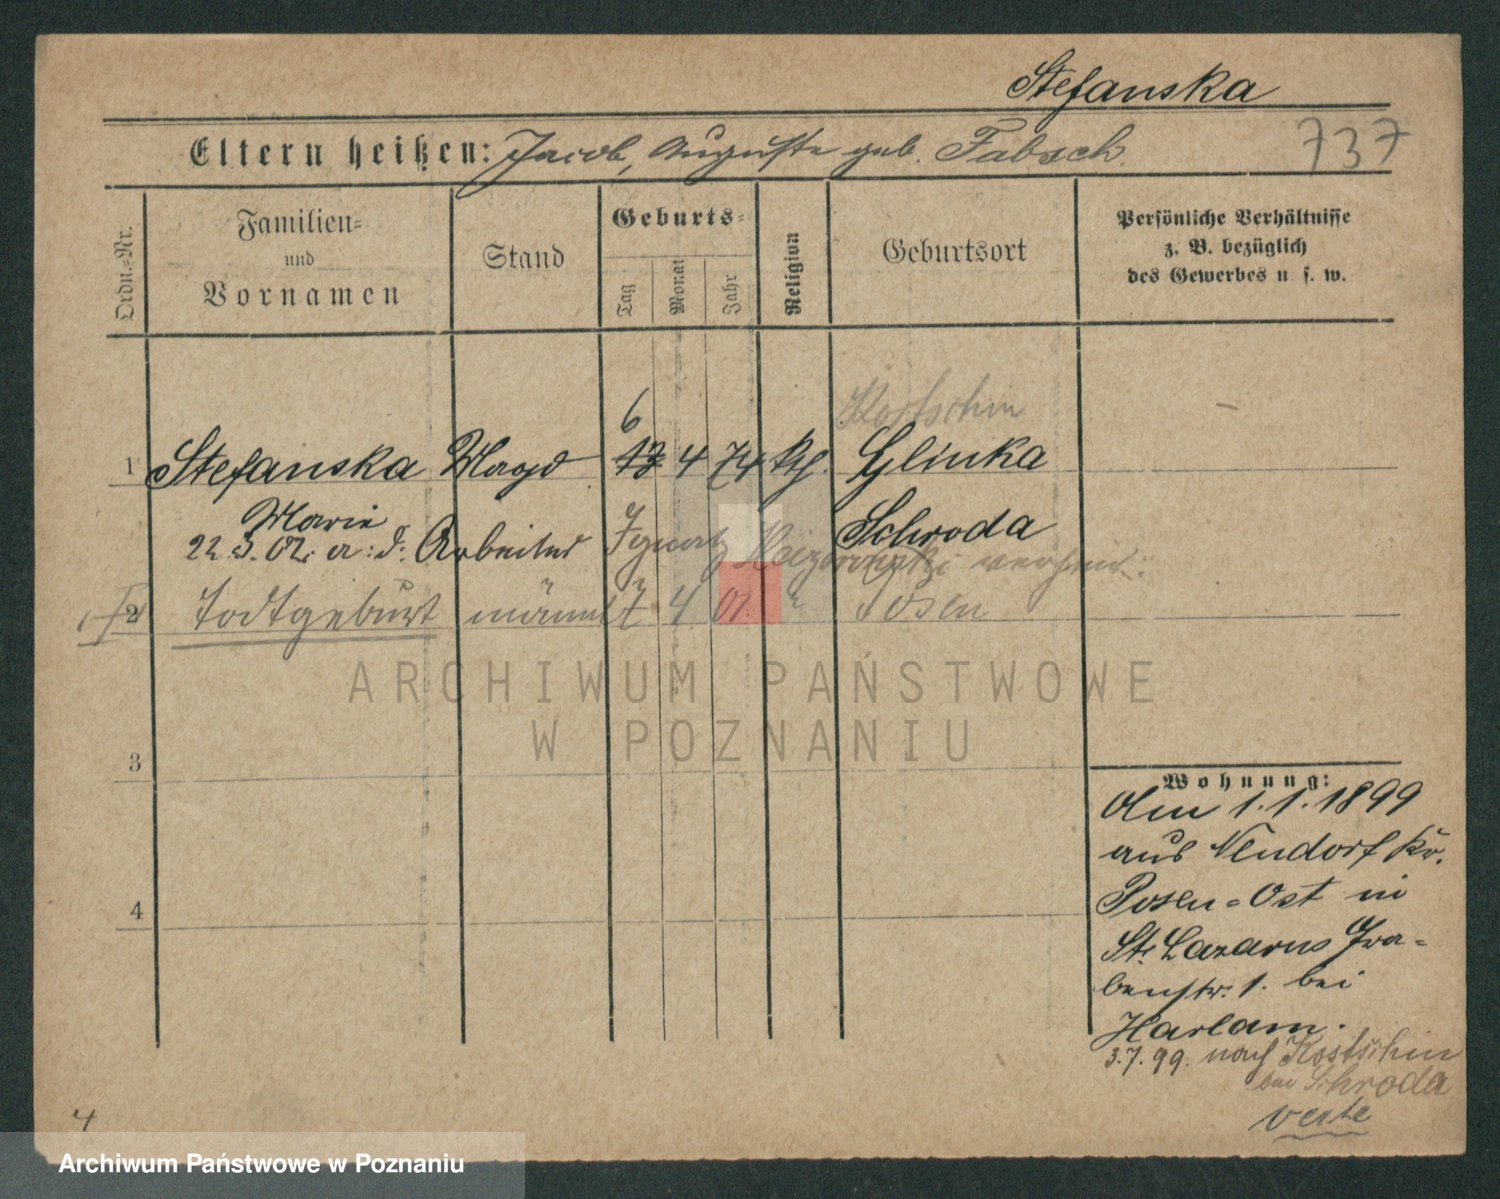 Stefanska
Eltern heißen: Jacob, Auguste geb. Fabsch.
737
Ordn.-Nr.
Familien-
und
Vornamen
Stand
Geburts-
Tag
Monat
Jahr
Religion
Geburtsort
Persönliche Verhältnisse
z. B. bezüglich
des Gewerbes u. s. w.
6
Kostschin
1 Stefanska Magd 13 4 74 kth. Glinka
Marie Schroda
22.5.02. a: d: Arbeiter Ignatz verheir.
2 Todtgeburt männl 7 4 01. Posen
ARCHIWUM PAŃSTWOWE
W POZNANIU
3
4
Wohnung:
Am 1.1.1899
aus Neudorf Kr.
Posen-Ost in
St. Lazarus Gra-
benstr. 1. bei
Harlam.
3.7.99. nach Kostschin
bei Schroda
verte
4
Archiwum Państwowe w Poznaniu